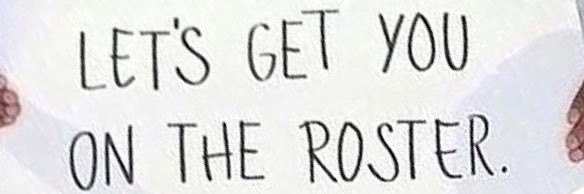 LET'S GET YOU
ON THE ROSTER.